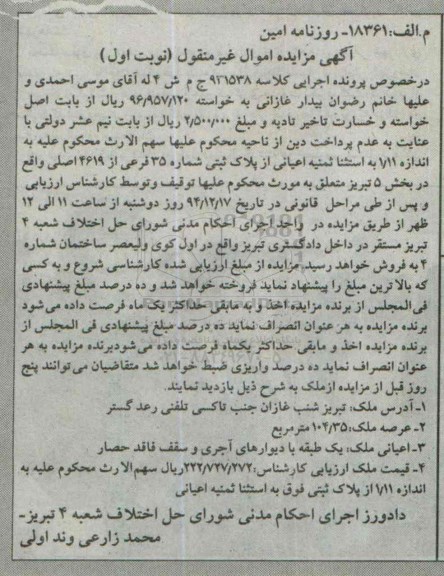 م.الف:۱۸۳۶۱- روزنامه امین
آگهی مزایده اموال غیرمنقول (نوبت اول)
درخصوص پرونده اجرایی کلاسه ۹۳۱۵۳۸ ج م ش ۴ له آقای موسی احمدی و
علیها خانم رضوان بیدار غازانی به خواسته ۹۶/۹۵۷/۱۲۰ ریال از بابت اصل
خواسته و خسارت تاخیر تادیه و مبلغ ۲/۵۰۰/۰۰۰ ریال از بابت نیم عشر دولتی با
عنایت به عدم پرداخت دین از ناحیه محکوم علیها سهم الارث محکوم علیه به
اندازه ۱/۱۱ به استثنا ثمنیه اعیانی از پلاک ثبتی شماره ۳۵ فرعی از ۴۶۱۹ اصلی واقع
در بخش ۵ تبریز متعلق به مورث محکوم علیها توقیف وتوسط کارشناس ارزیابی
و پس از طی مراحل قانونی در تاریخ ۹۴/۱۲/۱۷ روز دوشنبه از ساعت ۱۱ الی ۱۲
ظهر از طریق مزایده در واحد اجرای احکام مدنی شورای حل اختلاف شعبه ۴
تبریز مستقر در داخل دادگستری تبریز واقع در اول کوی ولیعصر ساختمان شماره
۴ به فروش خواهد رسید. مزایده از مبلغ ارزیابی شده کارشناسی شروع و به کسی
که بالا ترین مبلغ را پیشنهاد نماید فروخته خواهد شد و ده درصد مبلغ پیشنهادی
فی المجلس از برنده مزایده اخذ و به مابقی حداکثر یک ماه فرصت داده می شود
برنده مزایده به هر عنوان انصراف نماید ده درصد مبلغ پیشنهادی فی المجلس از
برنده مزایده اخذ و مابقی حداکثر یکماه فرصت داده می شودبرنده مزایده به هر
عنوان انصراف نماید ده درصد واریزی ضبط خواهد شد متقاضیان می توانند پنج
روز قبل از مزایده ازملک به شرح ذیل بازدید نمایند.
۱-آدرس ملک: تبریز شنب غازان جنب تاکسی تلفنی رعد گستر
۲- عرصه ملک:۱۰۴/۳۵ مترمربع
۳-اعیانی ملک: یک طبقه با دیوارهای آجری و سقف فاقد حصار
۴- قیمت ملک ارزیابی کارشناس:۲۲۲/۷۲۷/۲۷۲ریال سهم الارث محکوم علیه به
اندازه ۱/۱۱ از پلاک ثبتی فوق به استثنا ثمنیه اعیانی
دادورز اجرای احکام مدنی شورای حل اختلاف شعبه ۴ تبریز-
محمد زارعی وند اولی